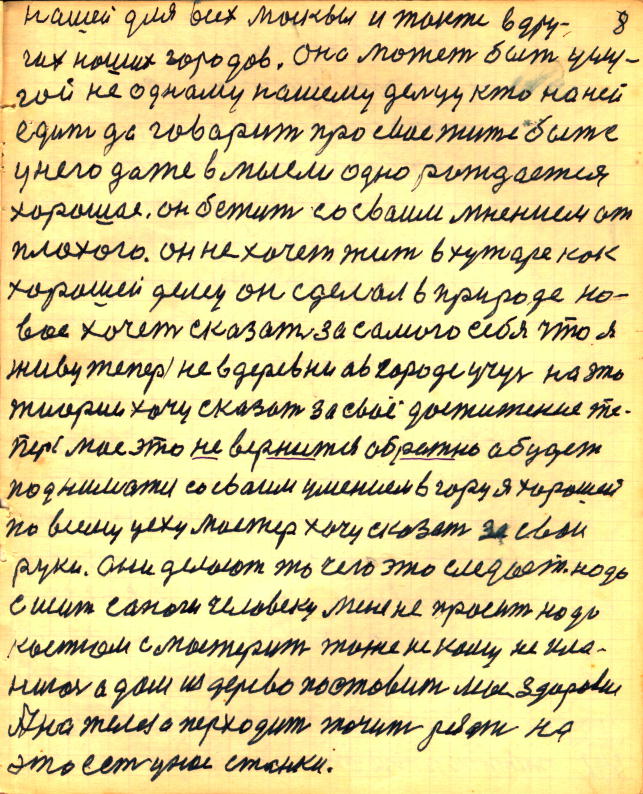 нашей для всех москвы и также в дру- 8
гих наших городов. Она может быт услу-
гой не одному нашему делцу кто на ней
едит да говарит про свое жите быте
у него даже в мысли одно рождается
хорошае. он бежит со сваим мнением от
плохого. он не хочет жит в хутаре как
хороший делец он сделал в природе но-
вое хочет сказат за самого себя что я
живу тепер не в деревни а в городе учус на это
жизории хочу сказат за своё достижение те-
пер мое это не вернится обратно а будет
поднимати со сваим умением в гору я хороший
по всему цеху мастер хочу сказат за сваи
руки. Они делают то чего это следоет. надо
сшит сапоги человеку мене не просит надо
костюм смастерит тоже не кому не кла-
нитса а дом из дерево поставит мое здоровие
А на железо перходит точит резати на
это ест у нас станки.